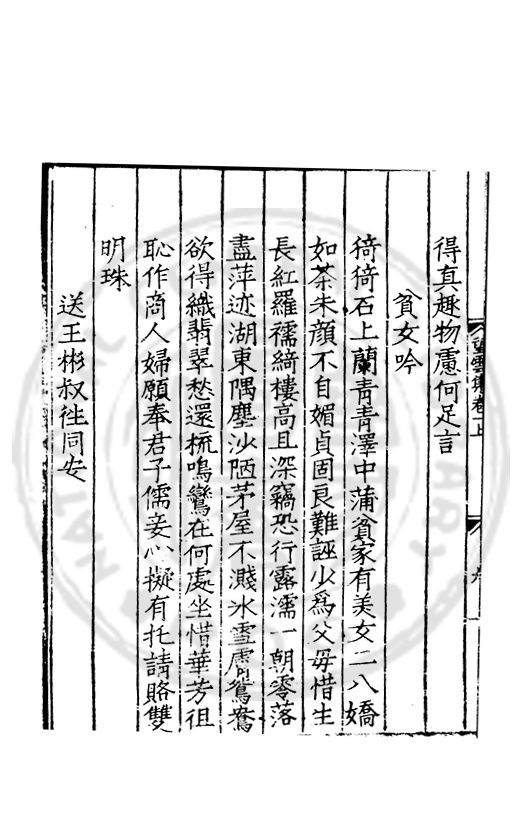 得真趣物慮何足言
貧女吟
猗猗石上蘭青青澤中蒲貧家有美女二八嬌
如荼朱顏不自媚貞固良難誣少為父毋惜生
長紅羅襦綺樓高且深竊恐行露濡一朝零落
盡萍迹湖東隅塵沙陋茅屋不濺氷雪膚鴛鴦
欲得織翡翠愁還梳鳴鸞在何處坐惜華芳徂
恥作商人婦願奉君子儒妾心擬有托請賂雙
明珠
送王彬叔徃同安
望雲集卷上